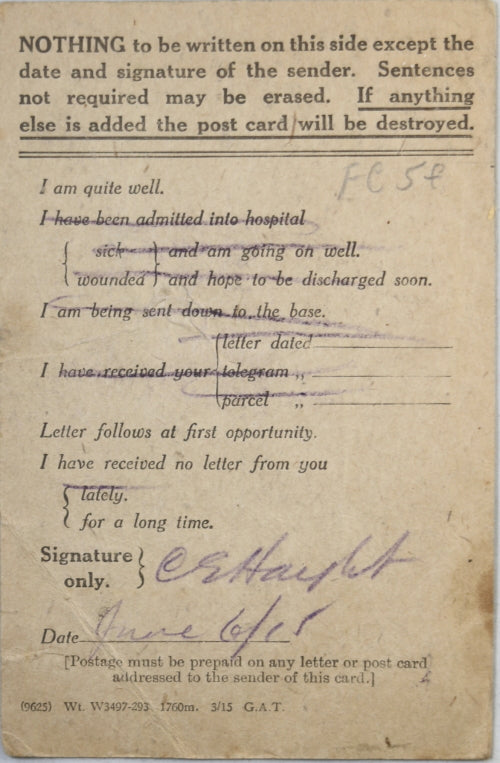 NOTHING to be written on this side except the
date and signature of the sender. Sentences
not required may be erased. If anything
else is added the post card will be destroyed.
FC 5f
I am quite well.
I have been admitted into hospital
{ sick } and am going on well.
{ wounded } and hope to be discharged soon.
I am being sent down to the base.
letter dated
I have received your { telegram „
parcel „
Letter follows at first opportunity.
I have received no letter from you
{ lately.
{ for a long time.
Signature } C E Haight
only.
Date June 6/15
[Postage must be prepaid on any letter or post card
addressed to the sender of this card.]
(9625) Wt. W3497-293 1760m. 3/15 G.A.T.